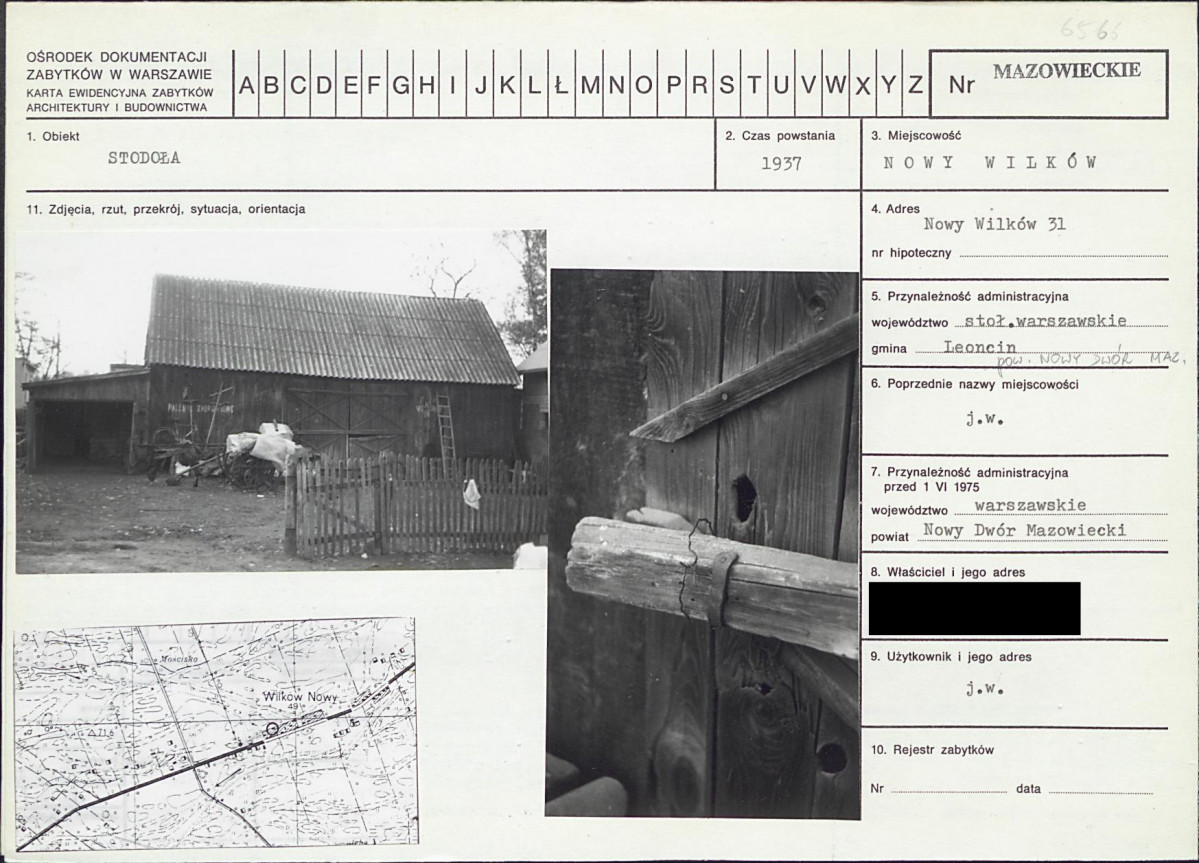 6566
OŚRODEK DOKUMENTACJI
ZABYTKÓW W WARSZAWIE
KARTA EWIDENCYJNA ZABYTKÓW
ARCHITEKTURY I BUDOWNICTWA
A B C D E F G H I J K L Ł M N O P R S T U V W X Y Z
Nr MAZOWIECKIE
1. Obiekt
STODOŁA
2. Czas powstania
1937
3. Miejscowość
NOWY WILKÓW
11. Zdjęcia, rzut, przekrój, sytuacja, orientacja
4. Adres
Nowy Wilków 31
nr hipoteczny
5. Przynależność administracyjna
województwo stoł.warszawskie
gmina Leoncin
pow. NOWY DWÓR MAZ.
6. Poprzednie nazwy miejscowości
j.w.
7. Przynależność administracyjna
przed 1 VI 1975
województwo warszawskie
powiat Nowy Dwór Mazowiecki
8. Właściciel i jego adres
9. Użytkownik i jego adres
j.w.
10. Rejestr zabytków
Nr data
Mościska
Wilków Nowy
49